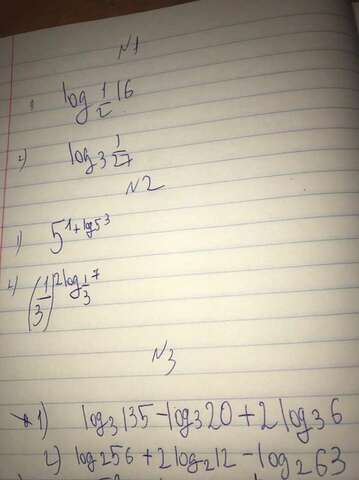 №1
1) log 1/2 16
2) log 3 1/27
№2
1) 5^1+log5^3
2) (1/3)^2log 1/3 7
№3
*1) log₃135-log₃20+2log₃6
2) log₂56+2log₂12-log₂63